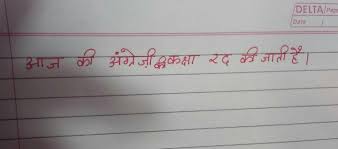 DELTA
Date
आज की अंग्रेजी कक्षा रद की जाती है।